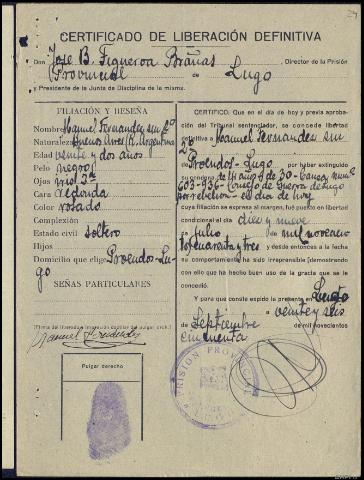 CERTIFICADO DE LIBERACIÓN DEFINITIVA
Don Jose B. Figueroa Brañas, Director de la Prisión
Provincial de Lugo
y Presidente de la Junta de Disciplina de la misma.
FILIACIÓN Y RESEÑA
Nombre Manuel Fernandez sin 2º
Naturaleza Buenos Aires (R. Argentina
Edad veinte y dos años
Pelo negro
Ojos
Cara redonda
Color rosado
Complexión
Estado civil soltero
Hijos
Domicilio que elige Proendos-Lu-
go
SEÑAS PARTICULARES
(Firma del liberado e impresión dactilar del pulgar drch.)
Manuel Fernandez
Pulgar derecho
CERTIFICO: Que en el día de hoy y previa
aprobación del Tribunal sentenciador, se concede libertad
definitiva a Manuel Fernandez sin
2º
Proendos-Lugo por haber extinguido
su condena de 14 años 8 d - 30 - Causa núm
603-936 - Consejo de Guerra de Lugo
por rebelión - el día de hoy
cuya filiación se expresa al margen, fué puesto en libertad
condicional el día diez y nueve
julio de mil novecien
tos cuarenta y tres y hasta la fecha
su comportamiento ha sido irreprensible (demostrando
con ello que ha hecho buen uso de la gracia que se le
concedió.
Y para que conste expido la presente en Lugo
a veinte y seis
de Septiembre de mil novecientos
cincuenta
PRISIÓN PROVINCIAL
LUGO